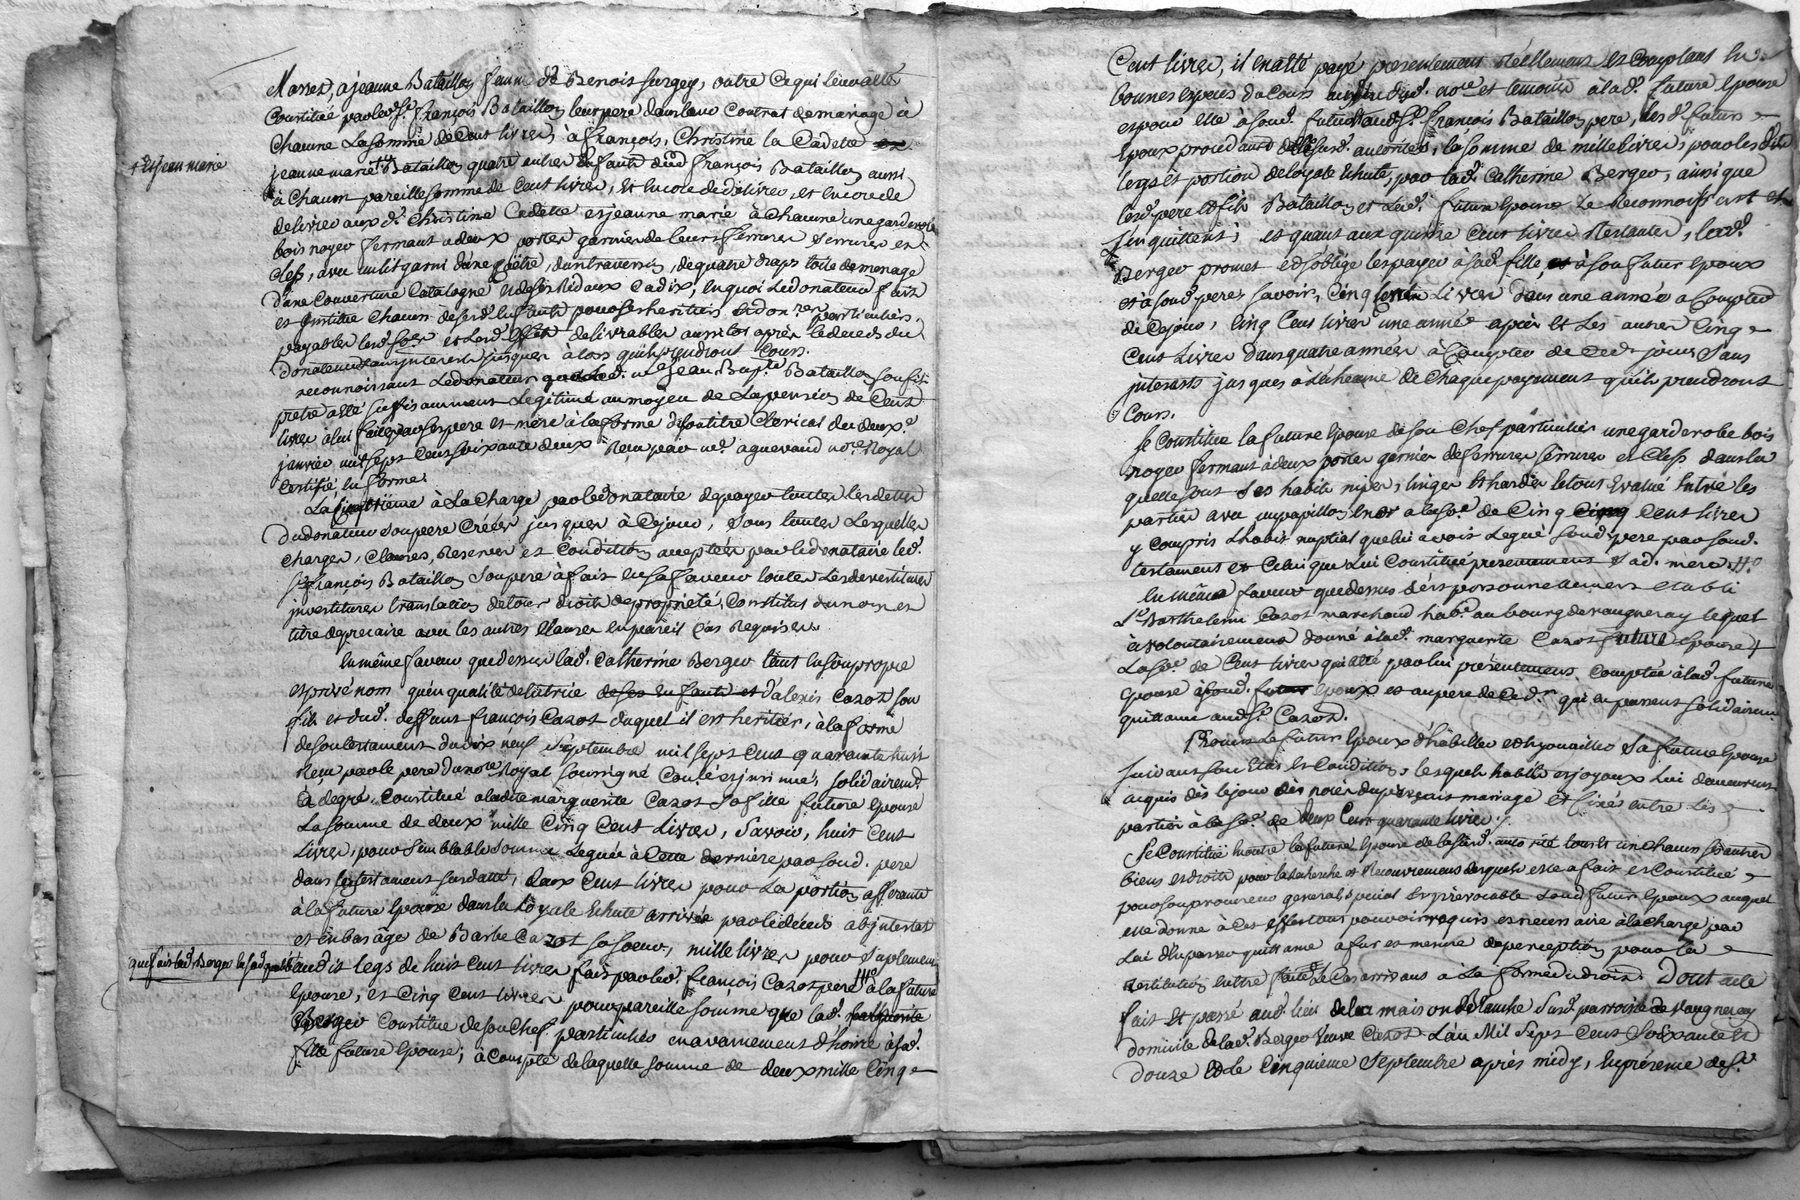 Masson, a jeanne Bataillon femme de Benois furgey, outre ce qui leur a été
Constitué par led. Sr. françois Bataillon leur pere dans leur Contrat de mariage à
Chacune La somme de Cent livres, à françois, Christine la Cadette
+ et jean marie
jeanne marie Bataillon quatre autres Enfants dud. françois Bataillon aussi
à chacun pareille somme de Cent livres, Et encore de délivrer, et encore de
delivrer aux d. Christine Cadette et jeanne marie à Chacune une garderobe
bois noyer fermant a deux portes garnie de leurs ferrures serrures et
clefs, avec un lit garni d'une d'un traversin, de quatre draps toile de menage
d'une Couverture Catalogne et de ses Rideaux Cadix, en quoi Le donateur fait
et Institue chacun de sesd. Enfants pour ses heritiers et donres. particuliers,
payables lesd. Soes. et lesd. délivrables aussitot après le deceds du
donateur sans interets jusques alors qu'ils prendront Cours.
reconnoissant Le donateur que led. me. jean Bapte. Bataillon son fils
pretre a été suffisamment Legitimé au moyen de La pension de Cent
livres à lui faite par ses pere et mere à la forme de son titre Clerical du deuxe.
janvier mil sept Cent soixante deux Reçu par me. aguevaud nore. Royal
Certifié en forme.
La Cinquième à La Charge par led. donataire de payer toutes les dettes
du donateur son pere Créées jusques à Cejour, sous toutes Lesquelles
Charges, Clauses, Reserves et Conditions acceptées par led. donataire led.
Sr. françois Bataillon son pere à fait en sa faveur toutes Les devestitures
investitures translation de tous droits de propriété, Constitut du nom et
titre de precaire avec les autres Clauses en pareil Cas Requises.
En même faveur que dessus lad. Catherine Berger tant en son propre
et privé nom qu'en qualité de tutrice de ses Enfants et d'alexis Cazot son
fils et dud. deffunt françois Cazot duquel il est heritier, à la forme
de son testament du dix neuf Septembre mil sept Cent quarante huit
Reçu par le pere du nore. Royal soussigné Conlé et insinué, solidairemt.
a de gré Constitué a ladite marguerite Cazot sa fille future Epouse
La somme de deux mille Cinq Cent Livres, Savoir, huit Cent
Livres, pour semblable somme Leguée à Cette dernière par soud. pere
dans son testament susdatté, deux Cent livres pour La portion afferante
à la future Epouse dans la Loyale Echute arrivée par le décèds abjntestat
et en bas âge de Barbe Cazot sa soeur, mille livres pour suplement
que fait lad. Berger en sad. qualité
audit legs de huit Cent livres fait par led. françois Cazot pere à la future
Epouse, et Cinq Cent livres pour pareille somme que lad. marguerite
Berger Constitue de son Chef particulier en avancement d'hoirie à sad.
fille future Epouse; à Compte de laquelle somme de deux mille Cinq
Cent livres, il en a été payé présentement Réellement et Comptant en
bonnes especes du Cours au vu dud. nore. et temoins à lad. future Epouse
et pour elle à soud. futur aud. Sr. françois Bataillon pere, les d. futurs
Epoux procedants de leursd. autorités, la somme de mille livres, pour lesdits
legs et portion de loyale Echute, par lad. Catherine Berger, ainsi que
lesd. pere et fils Bataillon et Lad. future Epouse Le Reconnoissent et
L'en quittent; et quant aux quinze Cent livres Restantes, lad.
Berger promet et s'oblige les payer à sad. fille et à son futur Epoux
et à soud. pere, savoir, Cinq Cent Livres dans une année à Compter
de Cejour, Cinq Cent livres une année après Et Les autres Cinq
Cent Livres dans quatre années à Compter de Ced. jour Sans
interests jusques à L'echeance de Chaque payement qu'ils prendront
Cours.
Se Constitue la future Epouse de son Chef particulier une garderobe bois
noyer fermant à deux portes garnie de ferrures serrures et Clefs dans la
quelle sont Ses habits nipes, linges Et hardes le tout Evalué Entre les
parties avec un papillon En or a la soe. de Cinq Cent livres
y Compris L'habit nuptial que lui avoit Legué soud. pere par soud.
testament et Celui que Lui Constitue présentement sad. mere.
En même faveur que dessus s'est personnellement etabli
Sr. Barthelemi Cazot marchand habt. au bourg de vaugneray lequel
à volontairement donné à lad. marguerite Cazot future Epouse
La soe. de Cent livres qui a été par lui présentement Comptée à lad. future
Epouse à soud. futur Epoux et au pere de Ced.r. qui en passent solidairemt.
quittance aud. Sr. Cazot.
Promet Le futur Epoux d'habiller et enjouailler Sa future Epouse
suivant son Etat Et Condition, lesquels habits et joyaux Lui demeurent
acquis dès le jour des noces du present mariage et fixés entre Les
parties à la soe. de deux Cent quarante livres.
Se Constitue en outre la future Epouse de lesd. autorité tous Et un chacuns Ses autres
biens et droits pour la Recherche et Recouvrement desquels elle a fait et Constitué
pour son procureur general special Et irrévocable Soud. futur Epoux auquel
elle donne à Cet Effet tout pouvoir requis et necessaire à la charge par
Lui d'en passer quittance à fur et mesure de perception pour la
restitution en être faite Le Cas arrivant à La forme du droit. Dont acte
fait Et passé aud. lieu de La maison blanche susd. parroisse de vaugneray
domicile de lad. Berger Veuve Cazot L'an Mil Sept Cent Soixante Et
douze Et le Cinquieme Septembre après midy, En présence de Sr.